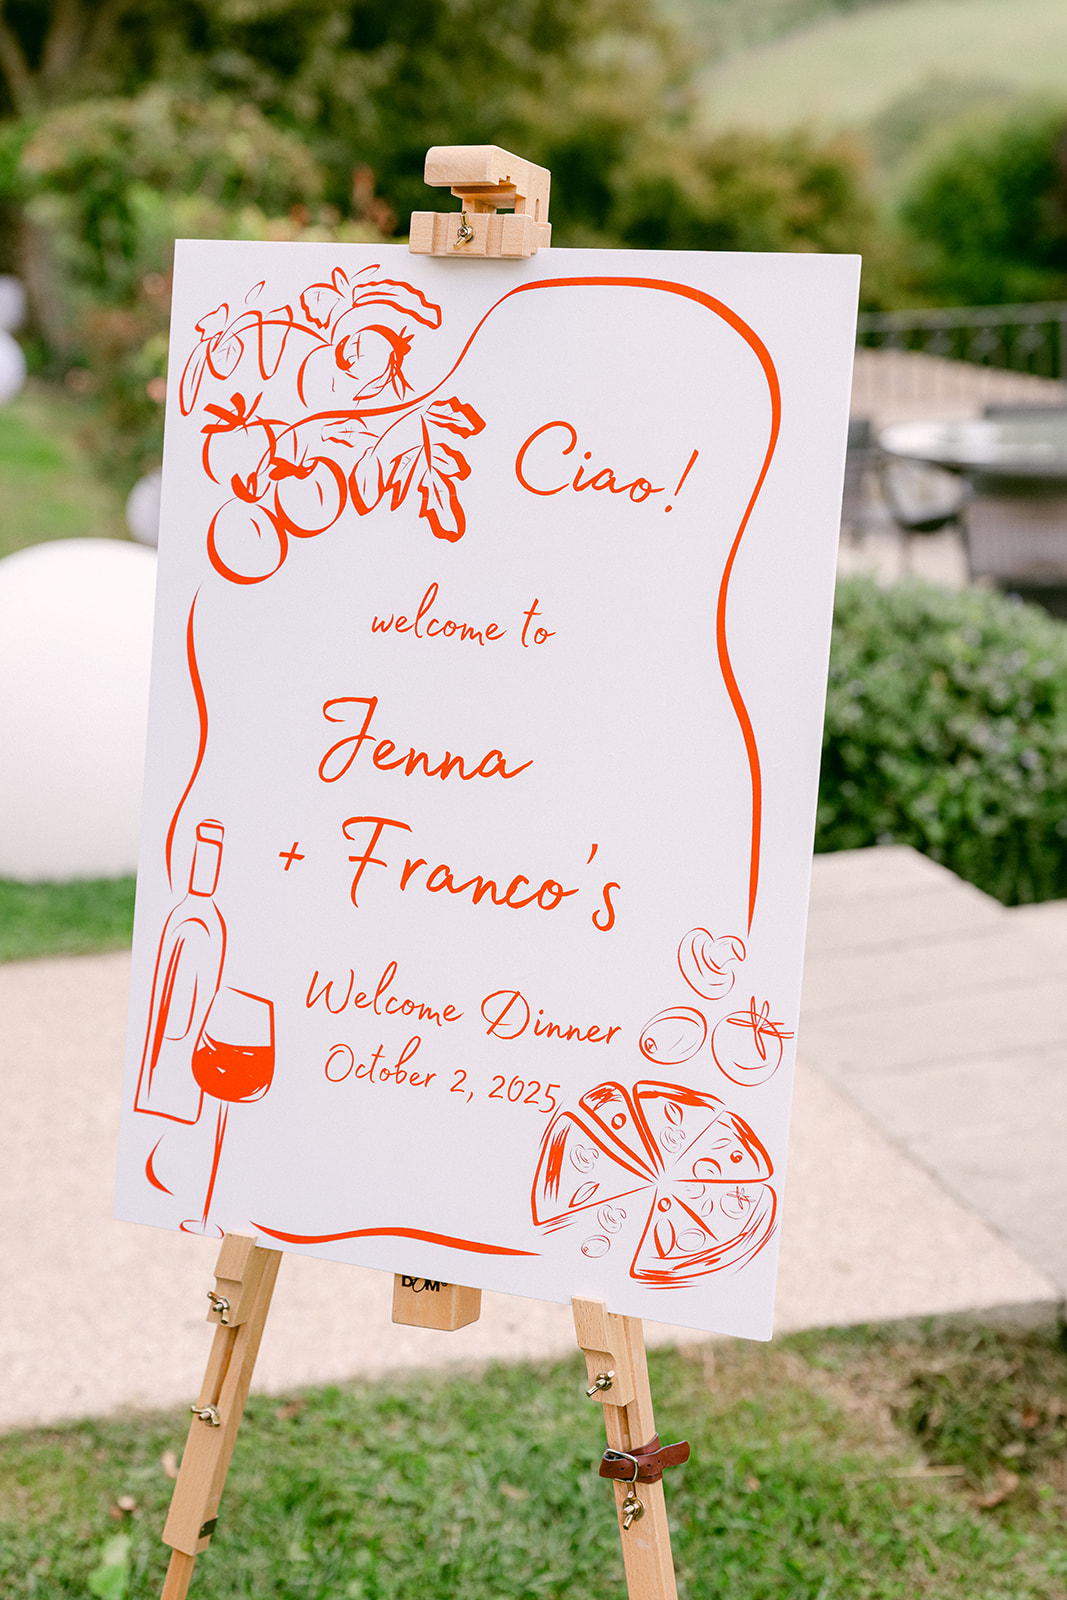 Ciao!
welcome to
Jenna
+ Franco's
Welcome Dinner
October 2, 2025